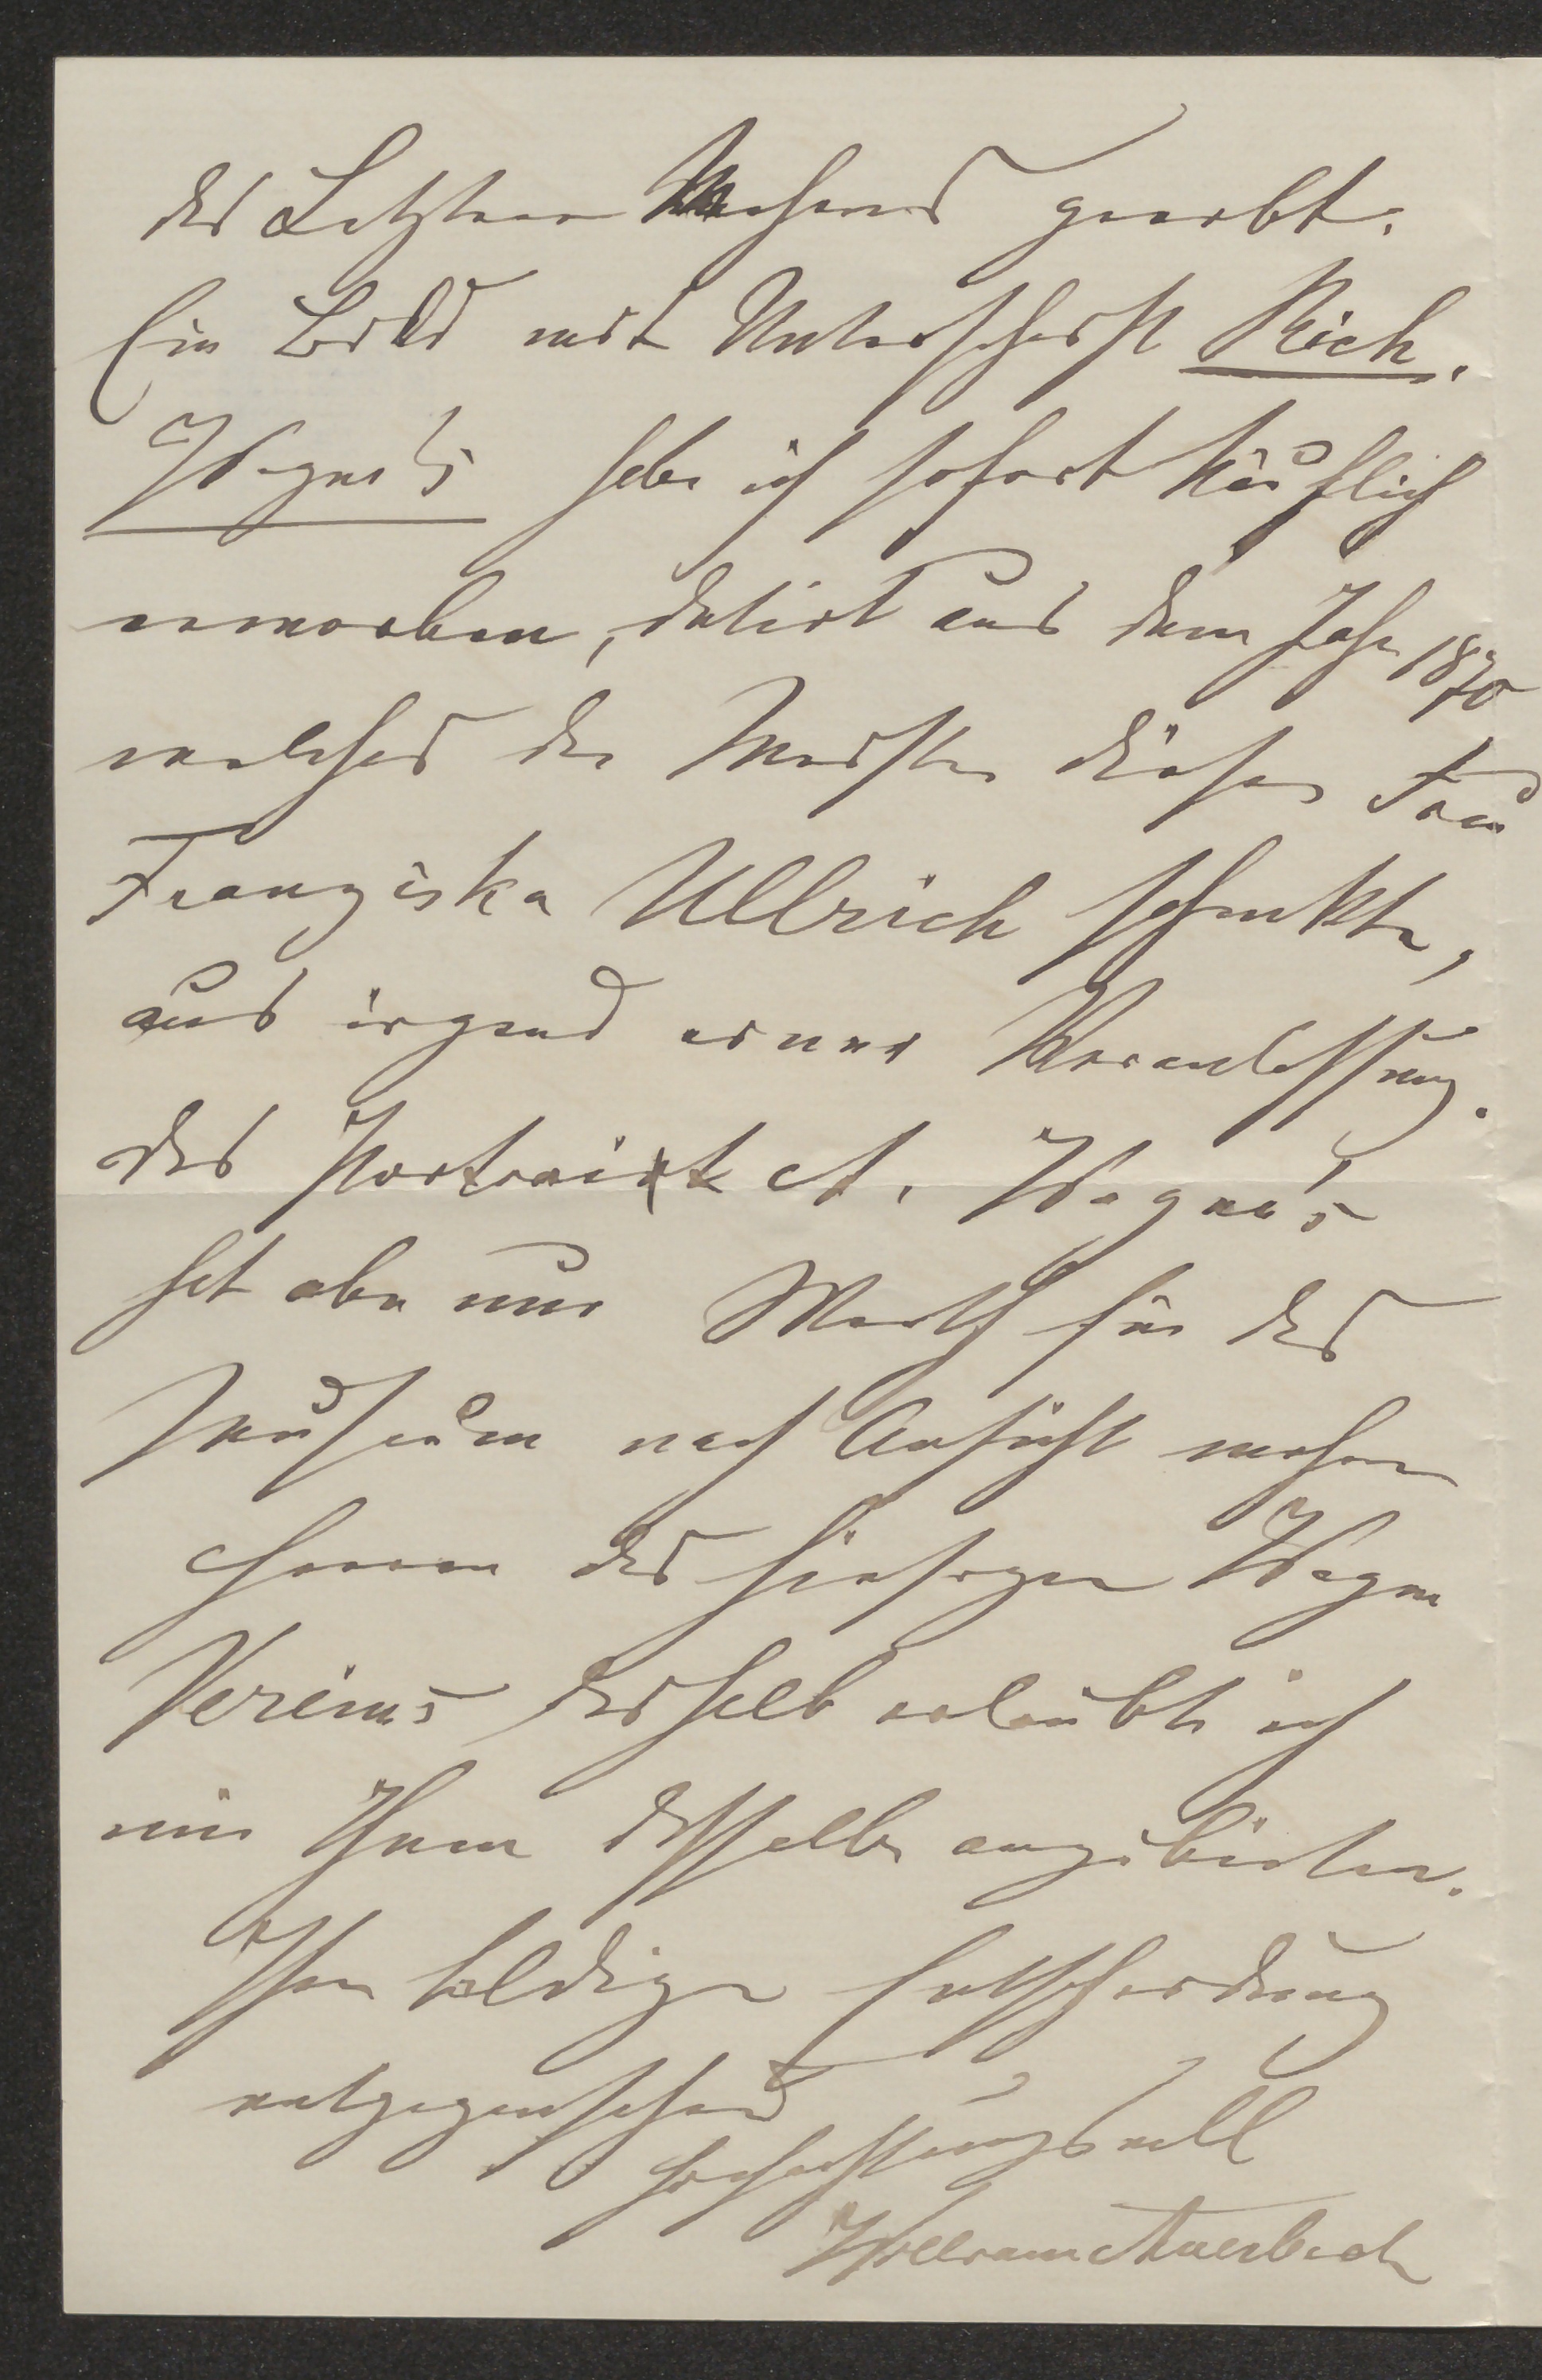 des Letzteren geerbt.
Ein Bild mit Unterschrift Rich.
Wagner's habe ich sofort käuflich
erworben, datirt aus dem Jahr 1870
welches der Meister dieser Frau
Franziska Ullrich schenkte,
aus irgend einer Veranlassung.
das Portrait A. Wagner's
hat aber nur Werth für das
Museum nach Ansicht mehrer
Herren des hiesigen Wagner
Vereins deshalb erlaubte ich
mir Ihnen dasselbe anzubieten.
Ihrer baldigen Entscheidung
entgegensehend
hochachtungsvoll
William Auerbach